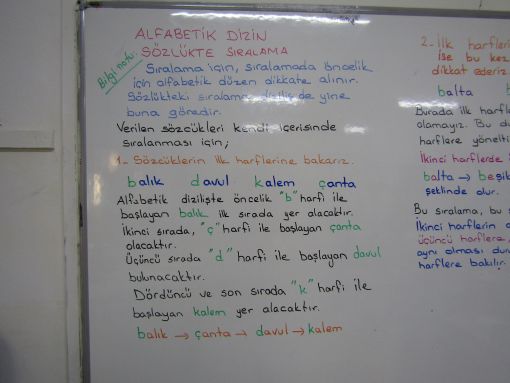 ALFABETİK DİZİN
SÖZLÜKTE SIRALAMA
Bilgi notu:
Sıralama için, sıralamada öncelik
için alfabetik düzen dikkate alınır.
Sözlükteki sıralama diziliş de yine
buna göredir.
Verilen sözcükleri kendi içerisinde
sıralanması için;
1- Sözcüklerin ilk harflerine bakarız.
balık davul kalem çanta
Alfabetik dizilişte öncelik "b" harfi ile
başlayan balık ilk sırada yer alacaktır.
İkinci sırada, "ç" harfi ile başlayan çanta
olacaktır.
Üçüncü sırada "d" harfi ile başlayan davul
bulunacaktır.
Dördüncü ve son sırada "k" harfi ile
başlayan kalem yer alacaktır.
balık → çanta → davul → kalem
2- İlk harfleri
ise bu kez
dikkat ederiz
balta
Burada ilk harfle
olamayız. Bu du
harflere yönelti
İkinci harflerde
balta → beşik
şeklinde olur.
Bu sıralama, bu
İkinci harflerin
üçüncü harflere,
aynı olması dur
harflere bakılır.